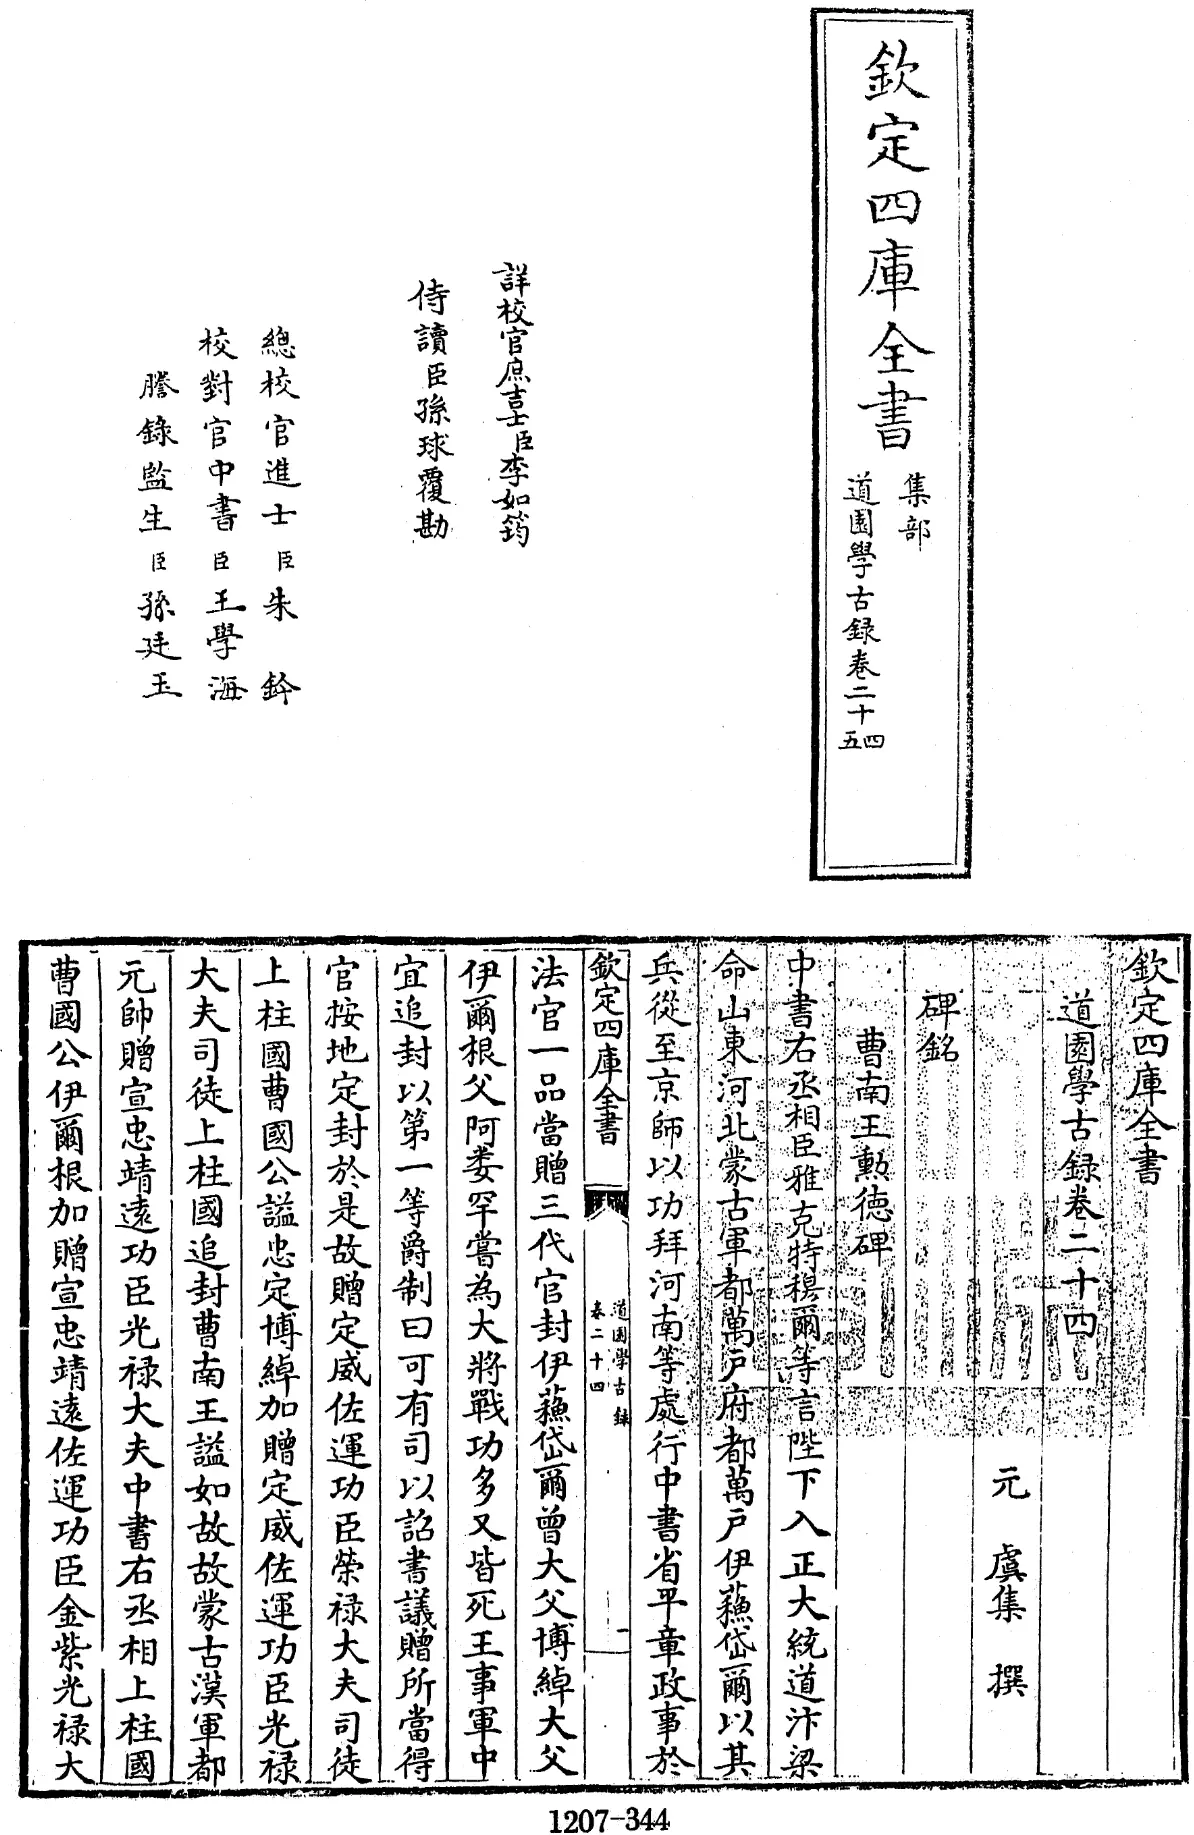 欽定四庫全書
集部
道園學古録卷二十四
五
詳校官庶吉士臣李如筠
侍讀臣孫球覆勘
總校官進士臣朱鈐
校對官中書臣王學海
謄錄監生臣孫廷玉
欽定四庫全書
道園學古録卷二十四
元 虞集 撰
碑銘
曹南王勲德碑
中書右丞相臣雅克特穆爾等言陛下入正大統道汴梁
命山東河北蒙古軍都萬戸府都萬戸伊蘓岱爾以其
兵從至京師以功拜河南等處行中書省平章政事於
欽定四庫全書
道園學古録
卷二十四
一
法官一品當贈三代官封伊蘓岱爾曾大父博綽大父
伊爾根父阿婁罕嘗為大將戰功多又皆死王事軍中
宜追封以第一等爵制曰可有司以詔書議贈所當得
官按地定封於是故贈定威佐運功臣榮禄大夫司徒
上柱國曹國公諡忠定博綽加贈定威佐運功臣光禄
大夫司徒上柱國追封曹南王諡如故故蒙古漢軍都
元帥贈宣忠靖遠功臣光禄大夫中書右丞相上柱國
曹國公伊爾根加贈宣忠靖遠佐運功臣金紫光禄大
1207-344